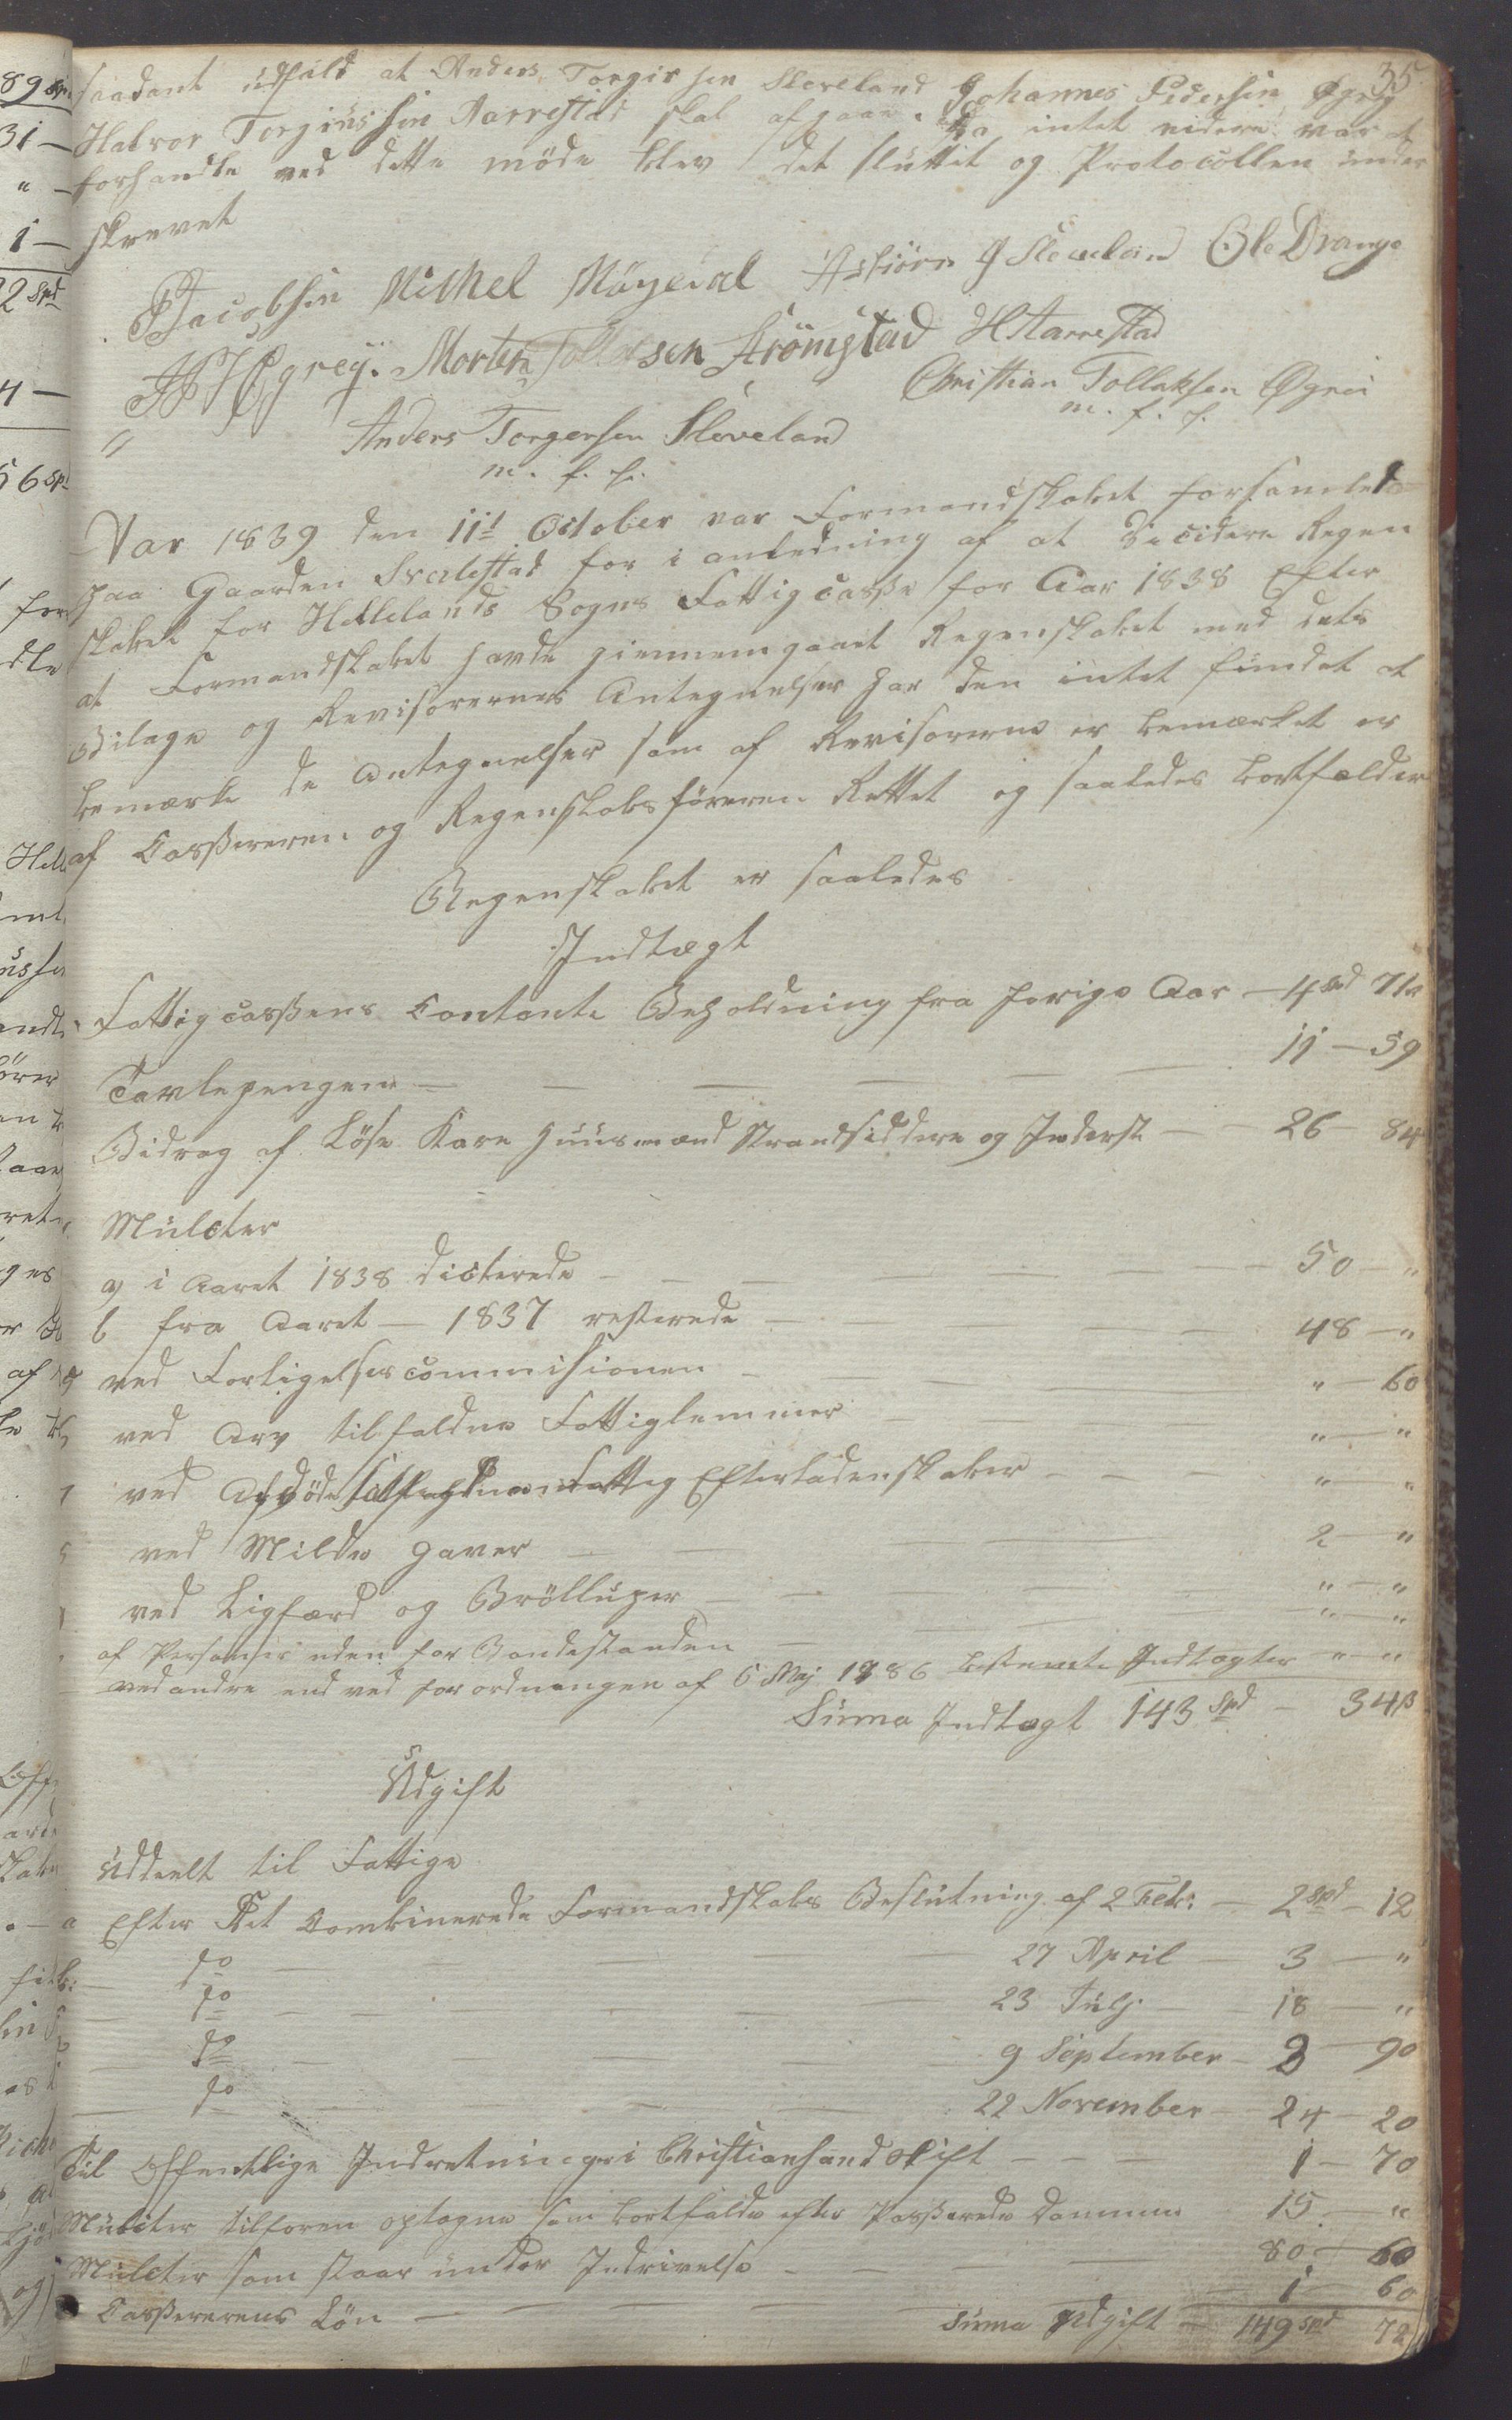 35
saadant udfald at Anders Torgersen Sleveland Johannes Pedersen Øgrey
Halvor Torginssen Aarrestad skal afgaae. Da intet videre var at
forhandle ved dette møde blev det sluttet og Protocollen under
skrevet
Jacobsen Mikkel Møgedal Asbiørn J Sleveland Ole Drange
Øgrey. Morten Tollaksen Strömstad H Aarrestad
Christian Tollaksen Øgrei
m. f. P.
Anders Torgersen Sleveland
m. f. P.
Aar 1839 den 11te October var Formandskabet forsamlet
paa Gaarden Svalestad for i anledning af at Decidere Regen
skabet for Hellelands Sogns Fattigcasse for Aar 1838 Efter
at Formandskabet havde giennemgaaet Regenskabet med dets
Bilage og Revisorernes Antegnelser har den intet fundet at
bemærke de Antegnelser som af Revisorerne er bemærket er
af Casserern og Regenskabsføreren Rettet og saaledes bortfalder
Regenskabet er saaledes
Indtægt
Fattigcassens Contante Beholdning fra forige Aar — 4 Spd 71
Tavlepengene — 11 — 59
Bidrag af Løse Kare Huusmænd Strandsiddere og Inderste — 26 — 84
Mulcter
a) i Aaret 1838 dicterede — 50 — "
b fra Aaret — 1837 resterede — 48 — "
ved Forligelsescommisionen — " — 60
ved Arv tilfaldne Fattiglemmer " — "
ved Afdøde Fattig Efterladenskaber — " — "
ved Milde gaver — 2 — "
ved Ligfærd og Brölluper — " — "
af Personer uden for Bondestanden — " — "
ved andre end ved forordningen af 5 Mej 1786 bestemte Indtægter " — "
Suma Indtægt 143 Spd — 34 ß
Udgift
Uddeelt til Fattige
a Efter Det Combinerede Formandskabs Beslutning af 2 Febr: — 2 Spd — 12
— do — 27 April — 3 — "
— do — 23 Julj — 18 — "
— do — 9 September — 3 — 90
— do — 22 November — 24 — 20
Til Offentlige Indretninger i Christiansand Stift — 1 — 70
Mulcter tilforen optagne som bortfalde efter Passerede Domme 15 — "
Mulcter som staar under Indrivelse — 80 — 60
Cassererens Løn — 1 — 60
Suma Udgift — 149 Spd 72